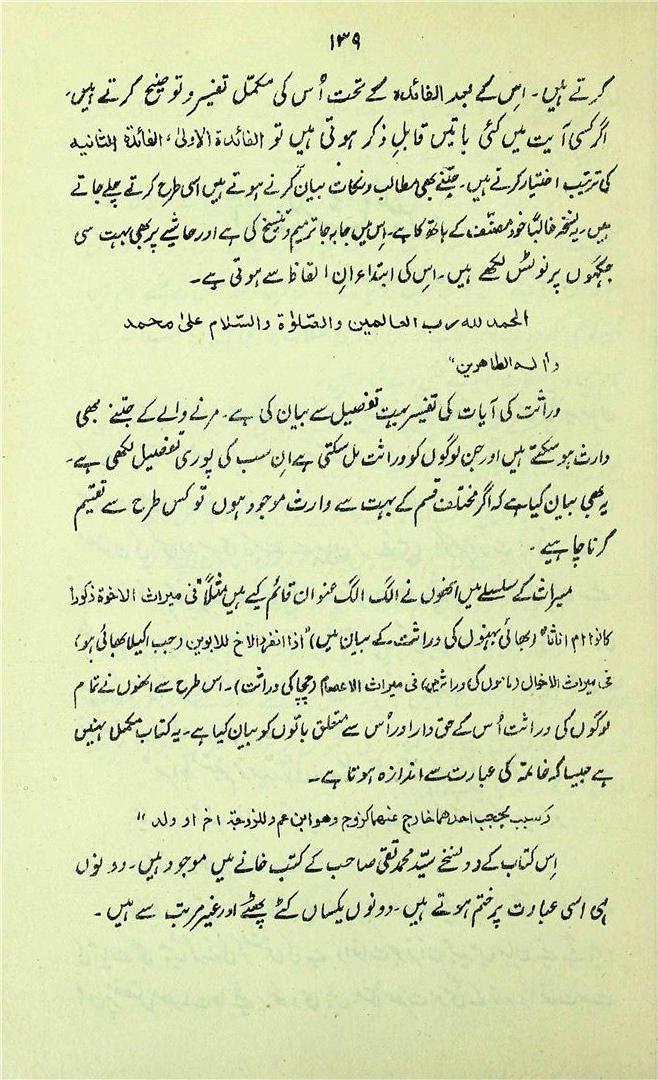 ۱۳۹
کرتے ہیں۔ اِس کے بعد الفائدۃ کے تحت اُس کی مکمّل تفسیر و توضیح کرتے ہیں۔
اگر کسی آیت میں کئی باتیں قابلِ ذکر ہوتی ہیں تو الفائدۃ الاولیٰ، الفائدۃ الثانیہ
کی ترتیب اختیار کرتے ہیں۔ جتنے بھی مطالب و نکات بیان کرنے ہوتے ہیں اسی طرح کرتے چلے جاتے
ہیں۔ یہ نسخہ غالباً خود مصنّف کے ہاتھ کا ہے۔ اِس میں جا بہ جا ترمیم و تنسیخ کی ہے اور حاشیے پر بھی بہت سی
جگہوں پر نوٹس لکھے ہیں۔ اِس کی ابتدا ان الفاظ سے ہوتی ہے۔
الحمد للہ رب العالمین والصّلوٰۃ والسّلام علیٰ محمد
واٰلہ الطاھرین"
وراثت کی آیات کی تفسیر بہت تفصیل سے بیان کی ہے۔ مرنے والے کے جتنے بھی
وارث ہو سکتے ہیں اور جن لوگوں کو وراثت مل سکتی ہے ان سب کی پوری تفصیل لکھی ہے۔
یہ بھی بیان کیا ہے کہ اگر مختلف قسم کے بہت سے وارث موجود ہوں تو کس طرح سے تقسیم
کرنا چاہیے۔
میراث کے سلسلے میں انھوں نے الگ الگ عنوان قائم کیے ہیں مثلاً "فی میراث الاخوۃ ذکورا
کانوا ام اناثا" (بھائی بہنوں کی وراثت کے بیان میں) "اذا انفرد الاخ للابوین (جب اکیلا بھائی ہو)
فی میراث الاخوال (ماموں کی وراثت میں) فی میراث الاعمام (چچا کی وراثت)۔ اس طرح سے انھوں نے تمام
لوگوں کی وراثت اُس کے حق دار اور اُس سے متعلق باتوں کو بیان کیا ہے۔ یہ کتاب مکمل نہیں
ہے جیسا کہ خاتمہ کی عبارت سے اندازہ ہوتا ہے۔
سبب یحجب احدھما خارج عنھما کزوج وھو ابن عم وللزوجۃ اخ او ولد"
اِس کتاب کے دو نسخے سیّد محمد تقی صاحب کے کتب خانے میں موجود ہیں۔ دونوں
ہی اسی عبارت پر ختم ہوتے ہیں۔ دونوں یکساں کٹے پھٹے اور غیر مرتب سے ہیں۔